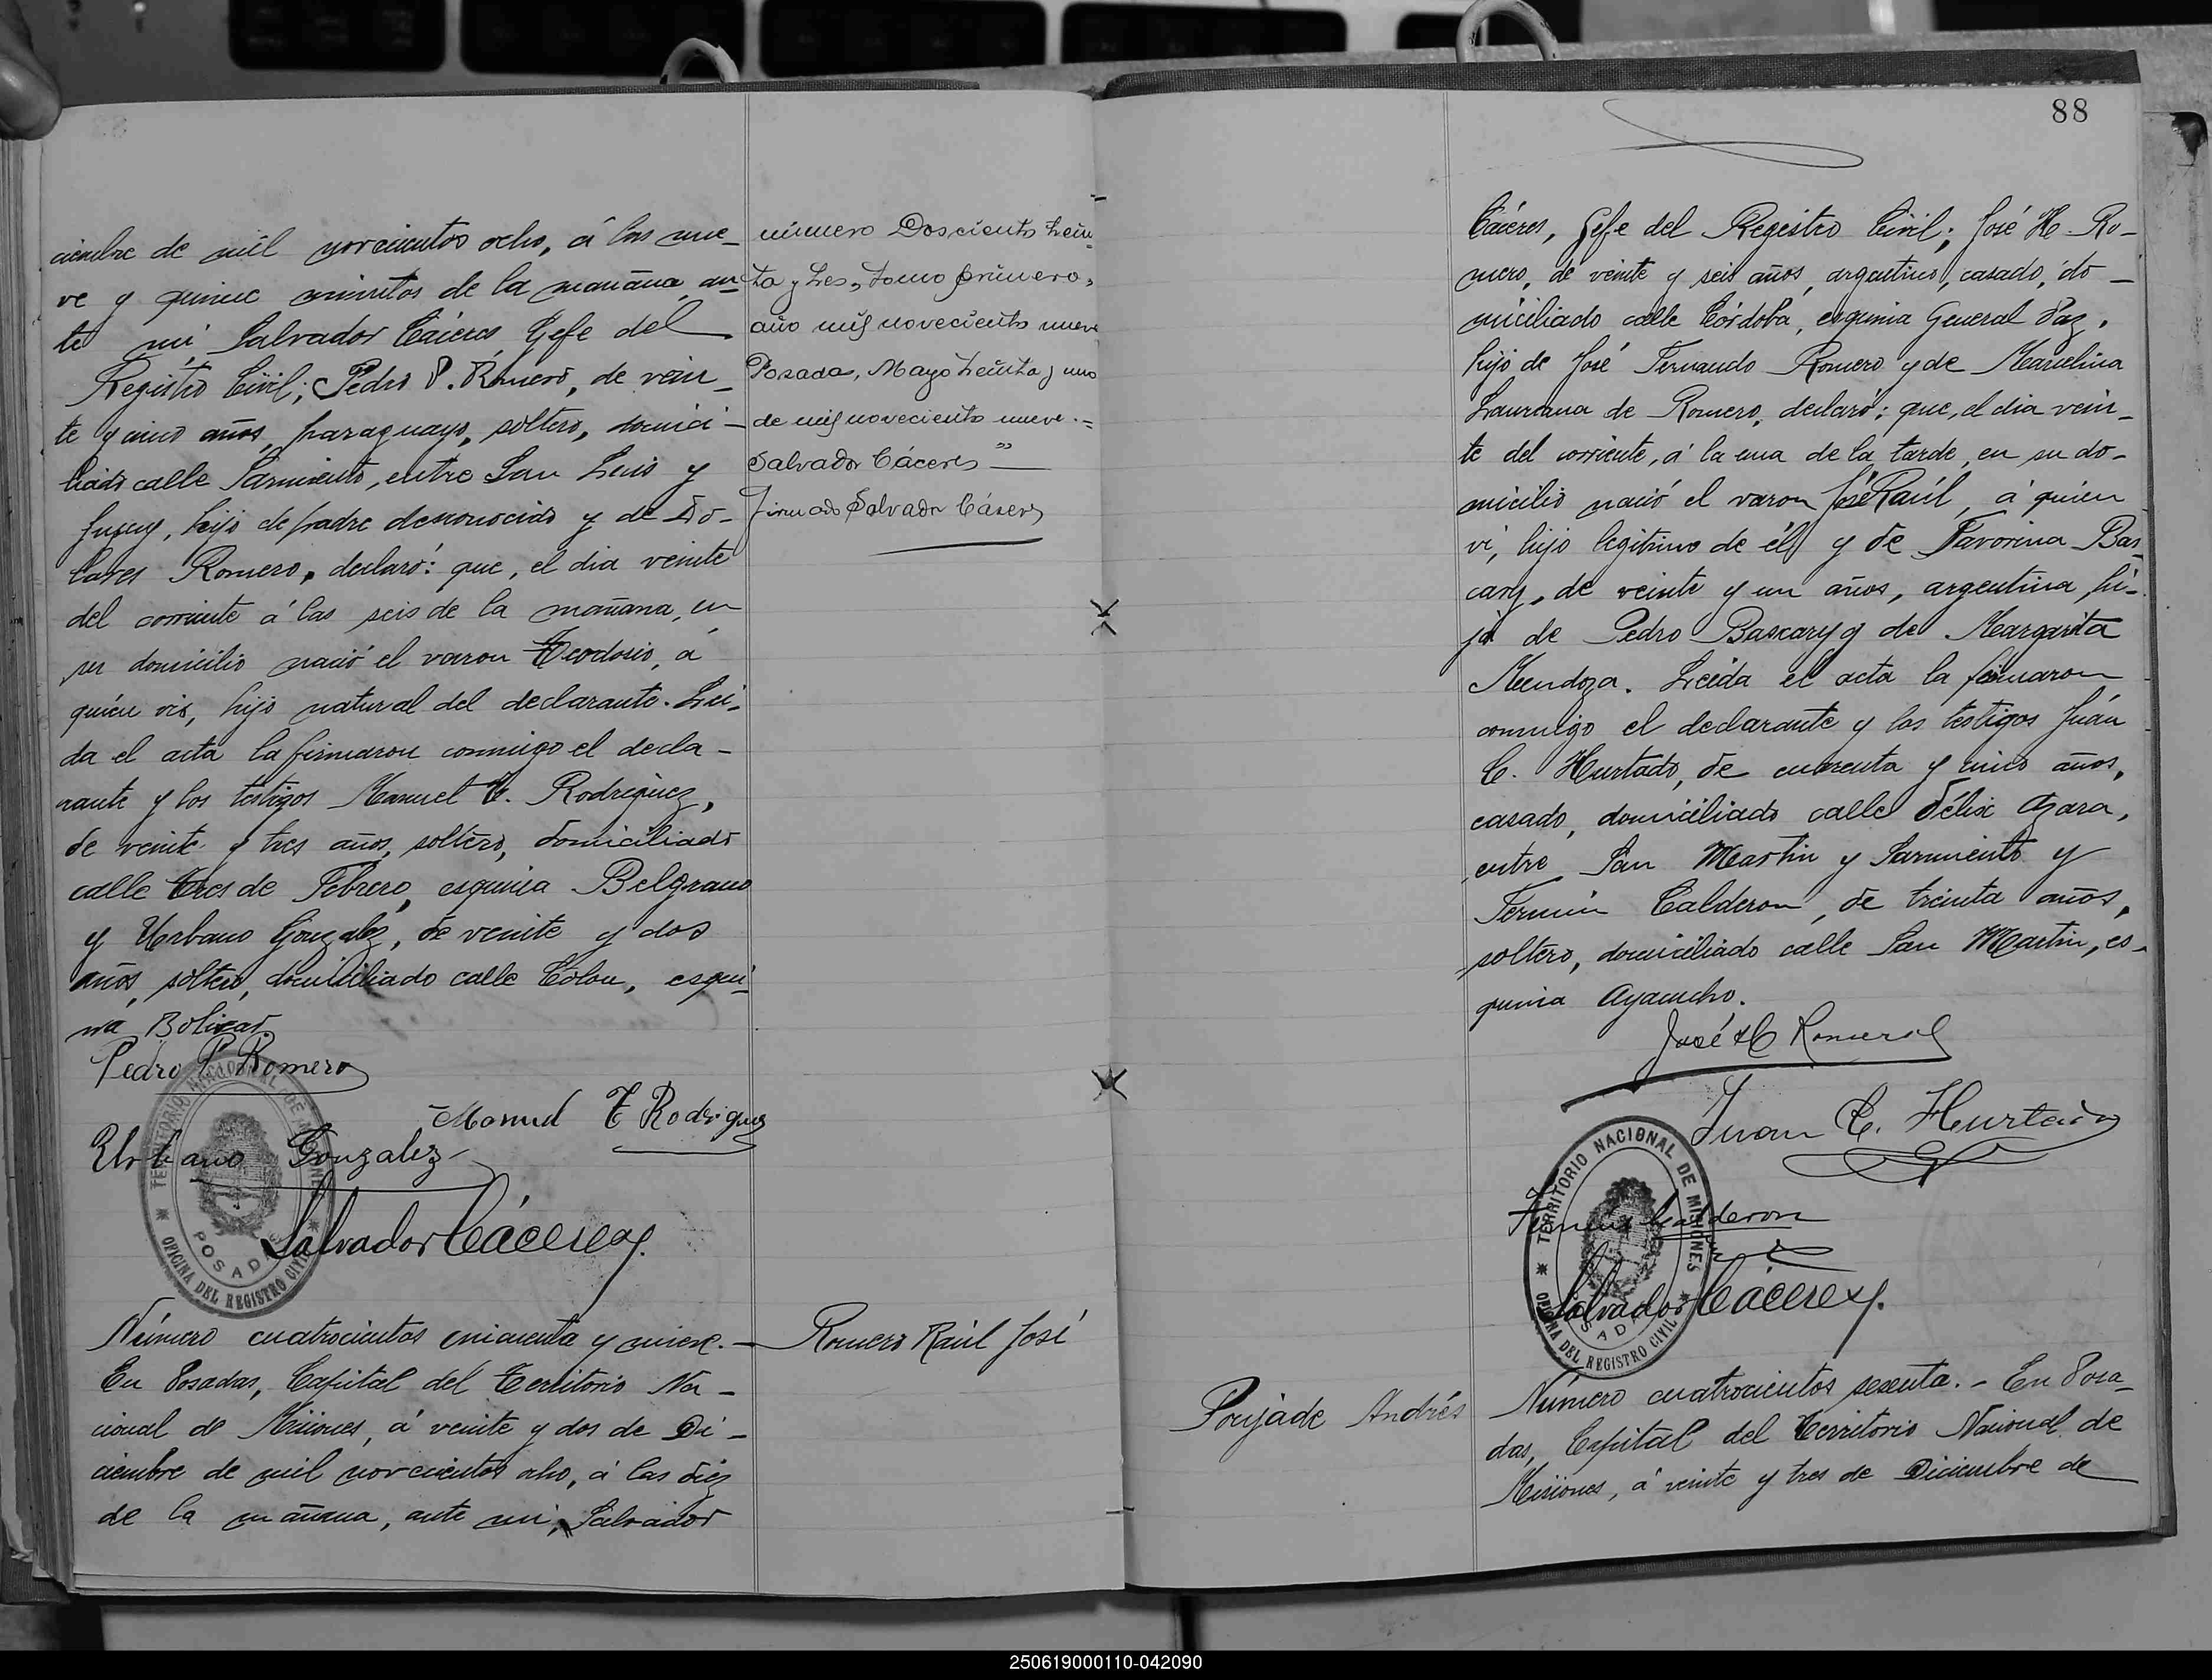 ciembre de mil novecientos ocho, á las nue-
ve y quince minutos de la mañana, an-
te mi Salvador Cáceres Gefe del
Registro Civil; Pedro P. Romero, de vein-
te y cinco años, paraguayo, soltero, domici-
liado calle Sarmiento, entre San Luis y
Jujuy, hijo de padre desconocido y de Do-
lores Romero, declaró: que, el dia veinte
del corriente á las seis de la mañana, en
su domicilio nació el varon Teodosio, á
quién vis, hijo natural del declarante. Lei-
da el acta la firmaron conmigo el decla-
rante y los testigos Manuel T. Rodriguez,
de veinte y tres años, soltero, domiciliado
calle Tres de Febrero, esquina Belgrano
y Urbano Gonzalez, de veinte y dos
años, soltero, domiciliado calle Colon, esqui-
na Bolivar.
Pedro P. Romero
Manuel T Rodriguez
Urbano Gonzalez
Salvador Cáceres.
TERRITORIO NACIONAL DE MISIONES
POSADAS
OFICINA DEL REGISTRO CIVIL
Número cuatrocientos cincuenta y nueve.-
En Posadas, Capital del Territorio Na-
cional de Misiones, á veinte y dos de Di-
ciembre de mil novecientos ocho, á las diez
de la mañana, ante mi, Salvador
número Doscientos trein-
ta y tres, tomo primero,
año mil novecientos nueve
Posadas, Mayo treinta y uno
de mil novecientos nueve.=
Salvador Cáceres
Firmado Salvador Cáceres
Romero Raúl José
88
Cáceres, Gefe del Registro Civil; José H. Ro-
mero, de veinte y seis años, argentino, casado, do-
miciliado calle Córdoba, esquina General Paz,
hijo de José Fernando Romero y de Marcelina
Laureana de Romero, declaró: que, el dia vein-
te del corriente, á la una de la tarde, en su do-
micilio nació el varon José Raúl, á quien
vi, hijo legitimo de él y de Favorina Bas-
cary, de veinte y un años, argentina, hi-
ja de Pedro Bascary y de Margarita
Mendoza. Leida el acta la firmaron
conmigo el declarante y los testigos Juán
C. Hurtado, de cuarenta y cinco años,
casado, domiciliado calle Félix Azara,
entre San Martin y Sarmiento y
Fermin Calderon, de treinta años,
soltero, domiciliado calle San Martin, es-
quina Ayacucho.
José H Romero
Juan C. Hurtado
Fermin Calderon
Salvador Cáceres.
TERRITORIO NACIONAL DE MISIONES
POSADAS
OFICINA DEL REGISTRO CIVIL
Poujade Andrés
Número cuatrocientos sesenta. - En Posa-
das, Capital del Territorio Nacional de
Misiones, á veinte y tres de Diciembre de
250619000110-042090